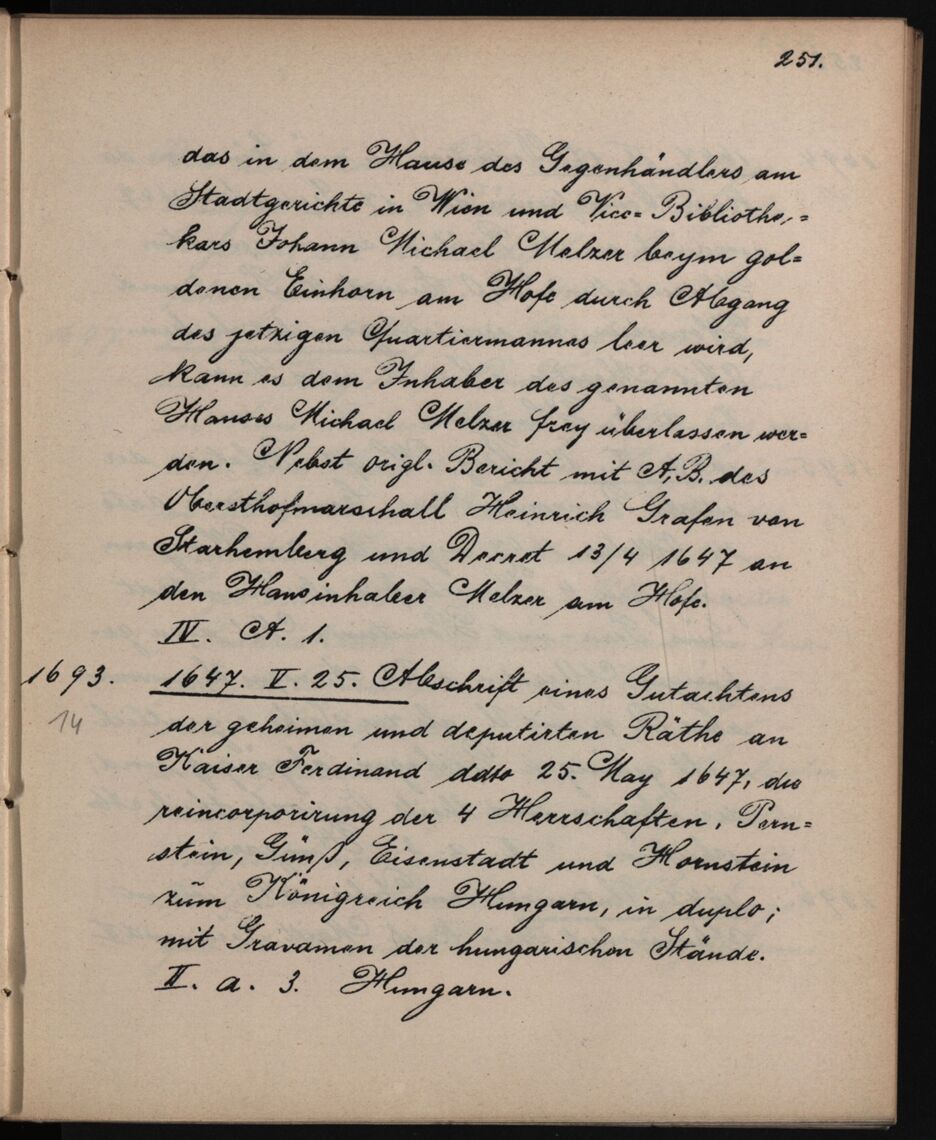 251.
das in dem Hause des Gegenhändlers am
Stadtgerichte in Wien und Vice=Bibliothe,=
kars Johann Michael Melzer beym gol=
denen Einhorn am Hofe durch Abgang
des jetzigen Quartiermannes leer wird,
kann es dem Inhaber des genannten
Hauses Michael Melzer frey überlassen wer=
den. Nebst origl. Bericht mit A, B. des
Obersthofmarschall Heinrich Grafen von
Starhemberg und Decret 13/4 1647 an
den Hausinhaber Melzer am Hofe.
IV. A. 1.
1693. 1647. V. 25. Abschrift eines Gutachtens
14 der geheimen und deputirten Räthe an
Kaiser Ferdinand ddto 25. May 1647, die
reincorporirung der 4 Herrschaften, Pern=
stein, Günß, Eisenstadt und Hornstein
zum Königreich Hungarn, in duplo;
mit Gravamen der hungarischen Stände.
II. a. 3. Hungarn.